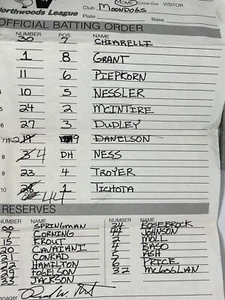 Northwoods League Club MOONDOGS VISITOR
Plate Base
OFFICIAL BATTING ORDER
NUMBER POS NAME
30 7 CHIARELLI
1 8 GRANT
11 6 PIEPKORN
10 5 NESSLER
24 2 MCINTIRE
27 3 DUDLEY
9 DANIELSON
8 34 DH NESS
9 23 4 TROYER
10 1 TICHOTA
RESERVES
NUMBER NAME NUMBER NAME
SPRINGMAN ROSEBROCK
CORNING JOHNSON
15 KROUT MOLL
20 CAVAIANI HASO
21 CONRAD ASH
22 HAMILTON PRICE
29 TOGELSON 32 MCGOSLAN
33 JACKSON